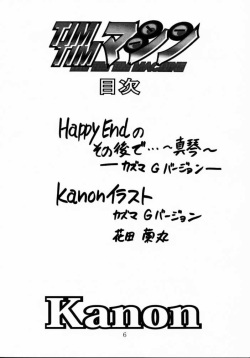 TIMTIMマシン
TIM TIM MACHINE
目次
Happy Endの
その後で…～真琴～
― カズマ Gバージョン ―
Kanonイラスト
カズマ Gバージョン
花田 蘭丸
Kanon
6